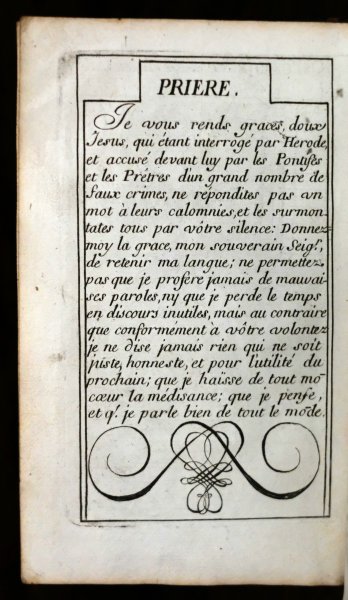 PRIERE.
Je vous rends graces, doux
Jesus, qui étant interrogé par Herode,
et accusé devant luy par les Pontifes
et les Prétres d'un grand nombre de
faux crimes, ne répondites pas un
mot à leurs calomnies, et les surmon-
tates tous par vôtre silence: Donnez
moy la grace, mon souverain Seigr.,
de retenir ma langue; ne permettez
pas que je profere jamais de mauvai-
ses paroles, ny que je perde le temps
en discours inutiles, mais au contraire
que conformément à vôtre volontez
je ne dise jamais rien qui ne soit
juste, honneste, et pour l'utilité du
prochain; que je haisse de tout mō
cœur la médisance; que je pense,
et q'. je parle bien de tout le mōde.